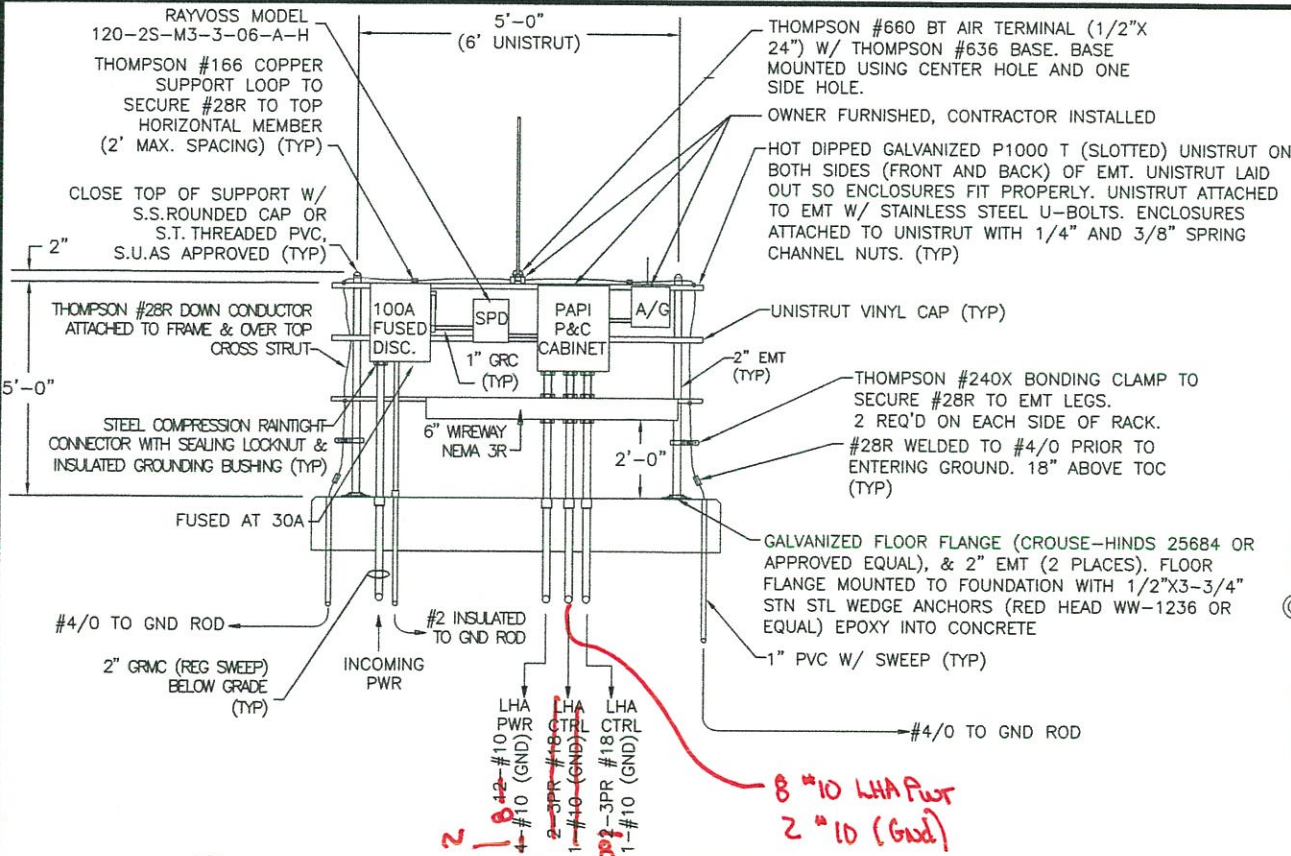 RAYVOSS MODEL
120-2S-M3-3-06-A-H
THOMPSON #166 COPPER
SUPPORT LOOP TO
SECURE #28R TO TOP
HORIZONTAL MEMBER
(2' MAX. SPACING) (TYP)
CLOSE TOP OF SUPPORT W/
S.S.ROUNDED CAP OR
S.T. THREADED PVC,
S.U.AS APPROVED (TYP)
2"
THOMPSON #28R DOWN CONDUCTOR
ATTACHED TO FRAME & OVER TOP
CROSS STRUT
5'-0"
STEEL COMPRESSION RAINTIGHT
CONNECTOR WITH SEALING LOCKNUT &
INSULATED GROUNDING BUSHING (TYP)
FUSED AT 30A
#4/0 TO GND ROD
2" GRMC (REG SWEEP)
BELOW GRADE
(TYP)
5'-0"
(6' UNISTRUT)
100A
FUSED
DISC.
SPD
PAPI
P&C
CABINET
A/G
1" GRC
(TYP)
2" EMT
(TYP)
6" WIREWAY
NEMA 3R
2'-0"
INCOMING
PWR
#2 INSULATED
TO GND ROD
THOMPSON #660 BT AIR TERMINAL (1/2"X
24") W/ THOMPSON #636 BASE. BASE
MOUNTED USING CENTER HOLE AND ONE
SIDE HOLE.
OWNER FURNISHED, CONTRACTOR INSTALLED
HOT DIPPED GALVANIZED P1000 T (SLOTTED) UNISTRUT ON
BOTH SIDES (FRONT AND BACK) OF EMT. UNISTRUT LAID
OUT SO ENCLOSURES FIT PROPERLY. UNISTRUT ATTACHED
TO EMT W/ STAINLESS STEEL U-BOLTS. ENCLOSURES
ATTACHED TO UNISTRUT WITH 1/4" AND 3/8" SPRING
CHANNEL NUTS. (TYP)
UNISTRUT VINYL CAP (TYP)
THOMPSON #240X BONDING CLAMP TO
SECURE #28R TO EMT LEGS.
2 REQ'D ON EACH SIDE OF RACK.
#28R WELDED TO #4/0 PRIOR TO
ENTERING GROUND. 18" ABOVE TOC
(TYP)
GALVANIZED FLOOR FLANGE (CROUSE-HINDS 25684 OR
APPROVED EQUAL), & 2" EMT (2 PLACES). FLOOR
FLANGE MOUNTED TO FOUNDATION WITH 1/2"X3-3/4"
STN STL WEDGE ANCHORS (RED HEAD WW-1236 OR
EQUAL) EPOXY INTO CONCRETE
1" PVC W/ SWEEP (TYP)
#4/0 TO GND ROD
LHA
PWR
12-#10
4-#10 (GND)
8
2
LHA
CTRL
2-3PR #18
1-#10 (GND)
LHA
CTRL
2-3PR #18
1-#10 (GND)
8 #10 LHA Pwr
2 #10 (Gnd)